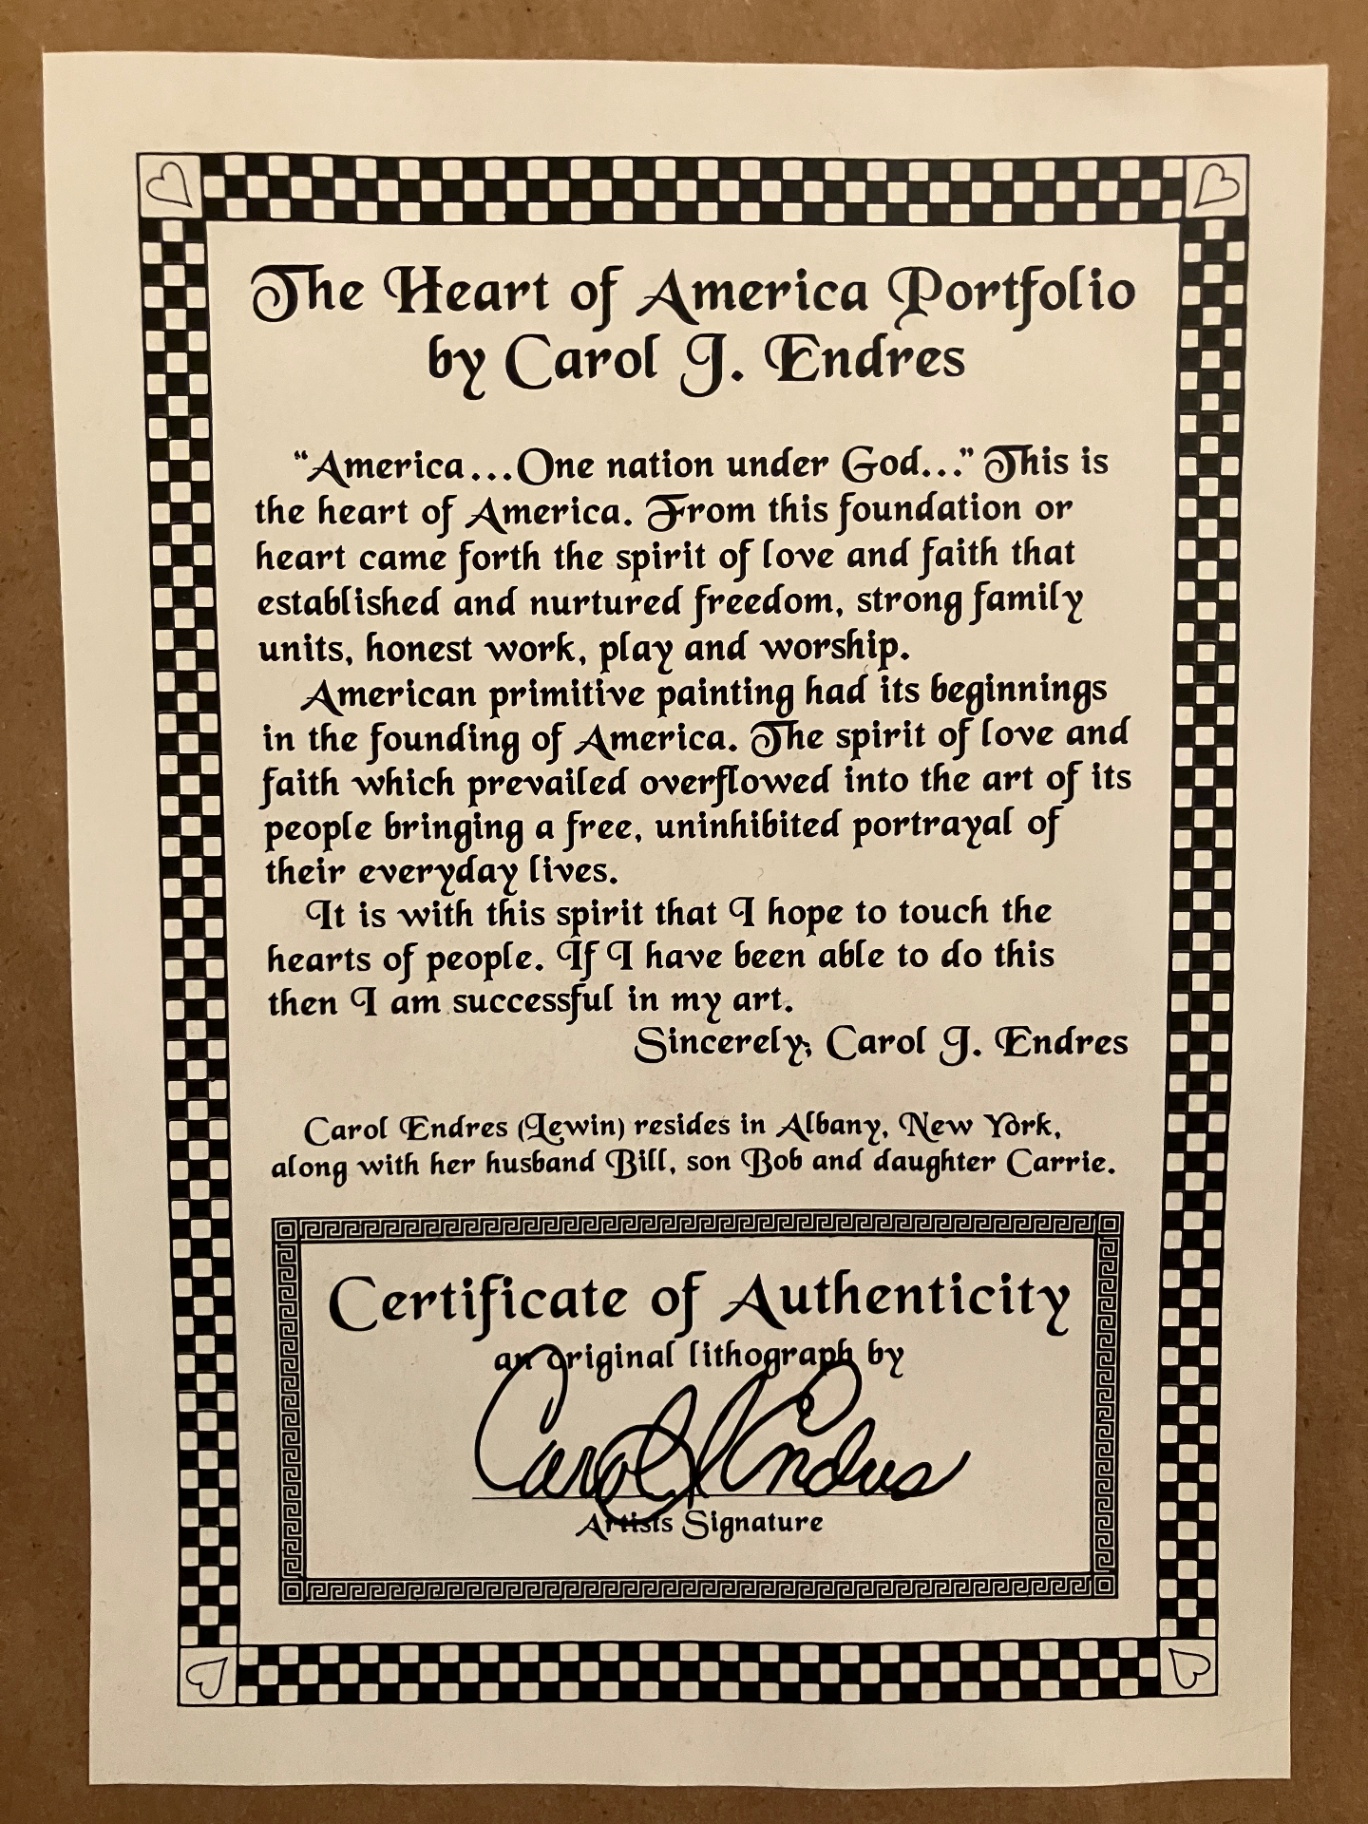 The Heart of America Portfolio
by Carol J. Endres
“America...One nation under God...” This is
the heart of America. From this foundation or
heart came forth the spirit of love and faith that
established and nurtured freedom, strong family
units, honest work, play and worship.
American primitive painting had its beginnings
in the founding of America. The spirit of love and
faith which prevailed overflowed into the art of its
people bringing a free, uninhibited portrayal of
their everyday lives.
It is with this spirit that I hope to touch the
hearts of people. If I have been able to do this
then I am successful in my art.
Sincerely, Carol J. Endres
Carol Endres (Lewin) resides in Albany, New York,
along with her husband Bill, son Bob and daughter Carrie.
Certificate of Authenticity
an original lithograph by
Carol J Endres
Artists Signature